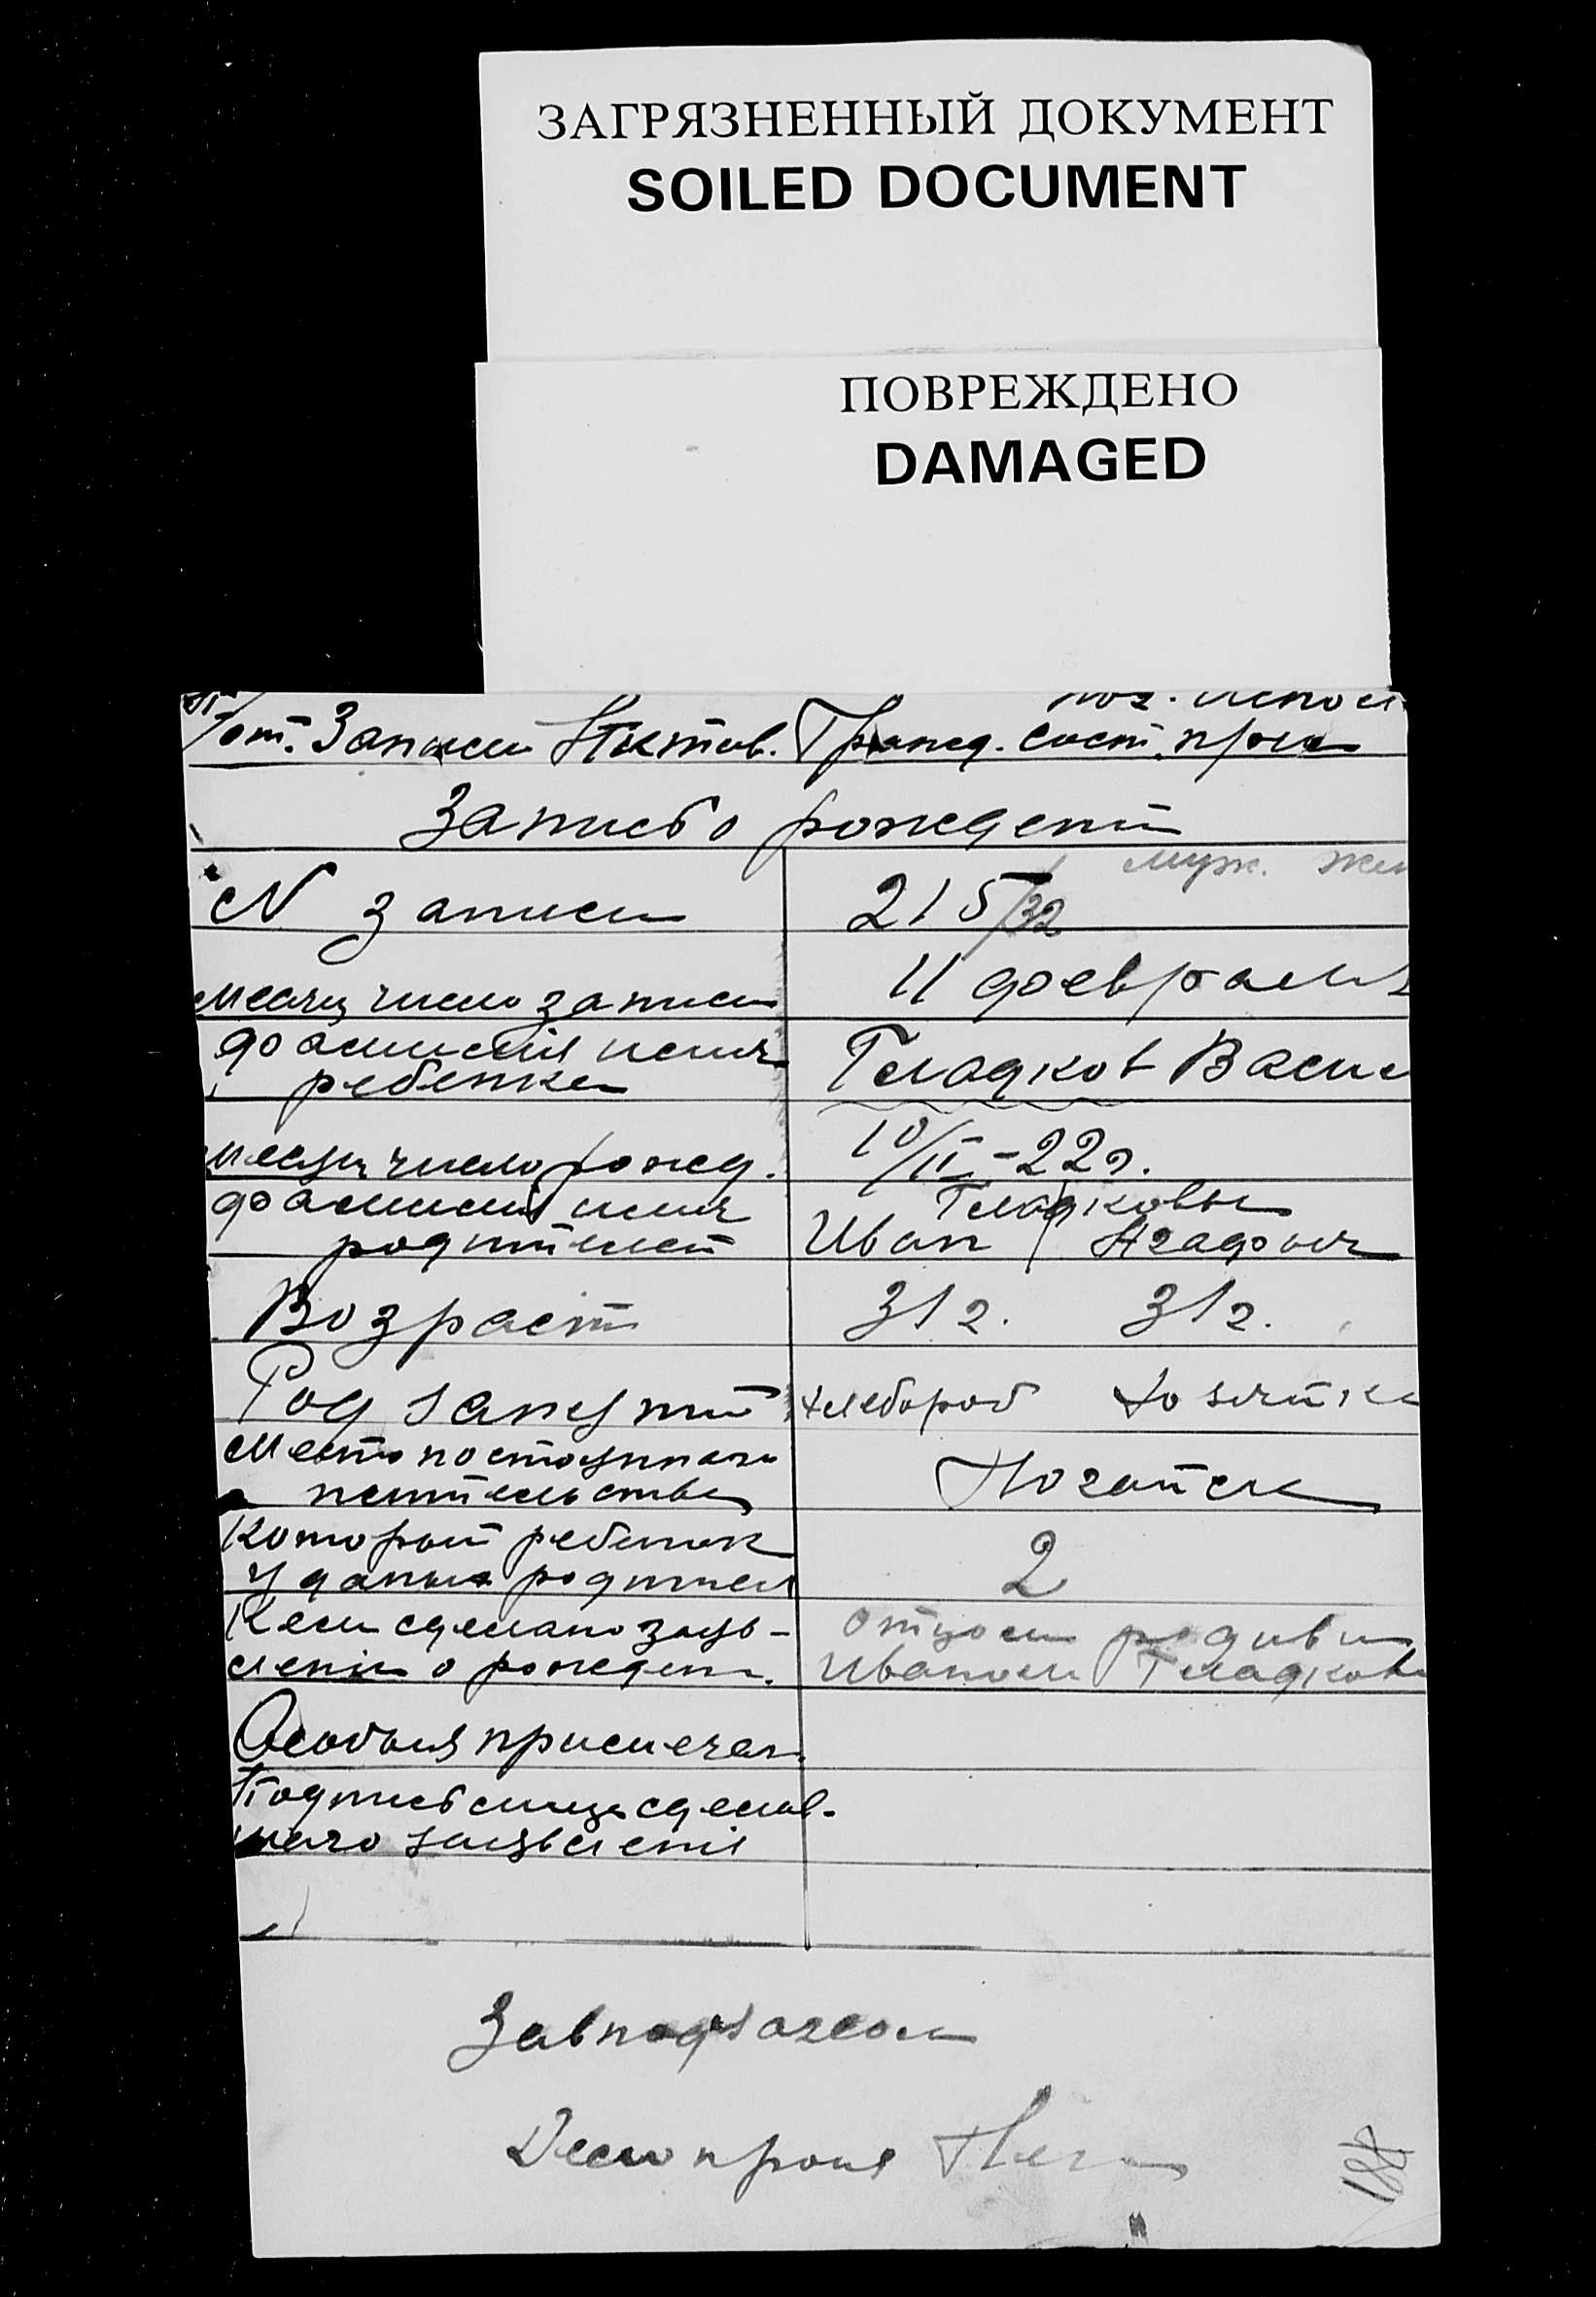 ЗАГРЯЗНЕННЫЙ ДОКУМЕНТ
SOILED DOCUMENT
ПОВРЕЖДЕНО
DAMAGED
от. Записи Актов. Гражд. сост.
Запись о рождении
муж. жен
N записи 215/32
месяц число записи 11 февраля
фамилия имя Гладков Васил
ребенка
месяц число рожд. 10/II-22г.
фамилия имя Гладковы
родителей Иван Агафия
Возраст 31 г. 31 г.
Род занятий хлебороб хозяйка
Место постоянного
жительства Ногайск
Который ребенок
у данных родителей 2
Кем сделано заяв- отцом
ление о рожден. Иваном Гладков
Особыя примечан.
Подпись лица сделав-
шаго заявления
Завподзагсом
Делопроиз